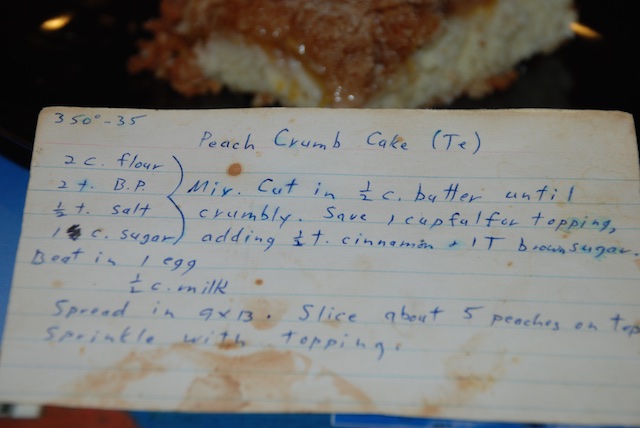 350°-35
Peach Crumb Cake (Te)
2 c. flour
2 t. B.P.
½ t. salt
1 c. sugar
Mix. Cut in ½ c. butter until
crumbly. Save 1 cupful for topping,
adding ½ t. cinnamon + 1 T brown sugar.
Beat in 1 egg
½ c. milk
Spread in 9x13. Slice about 5 peaches on top
Sprinkle with topping.